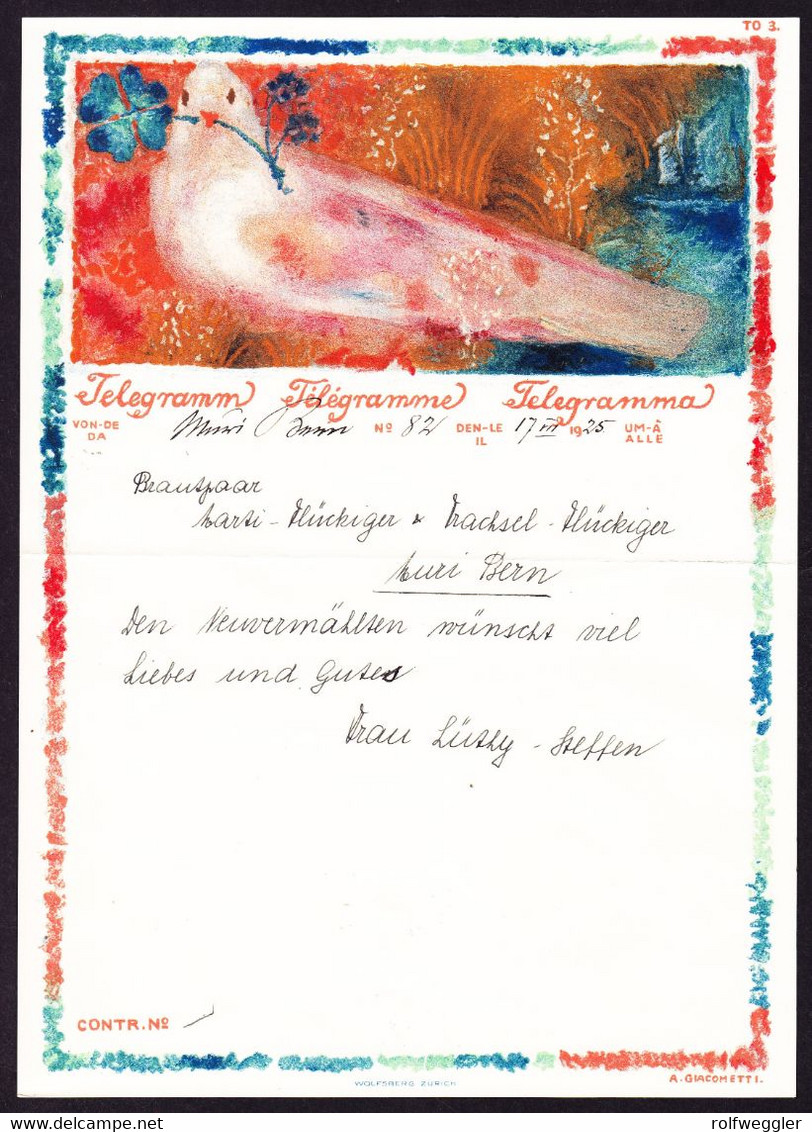 TO 3.
Telegramm Télégramme Telegramma
VON-DE Muri Bern Nº 82 DEN-LE 17 VII 1925 UM-À
DA IL ALLE
Brautpaar
Marti-Flückiger & Trachsel-Flückiger
Muri Bern
Den Neuvermählten wünscht viel
Liebes und Gutes
Frau Lüthy-Steffen
CONTR. Nº
WOLFSBERG ZÜRICH
A. GIACOMETTI.
rolfweggler